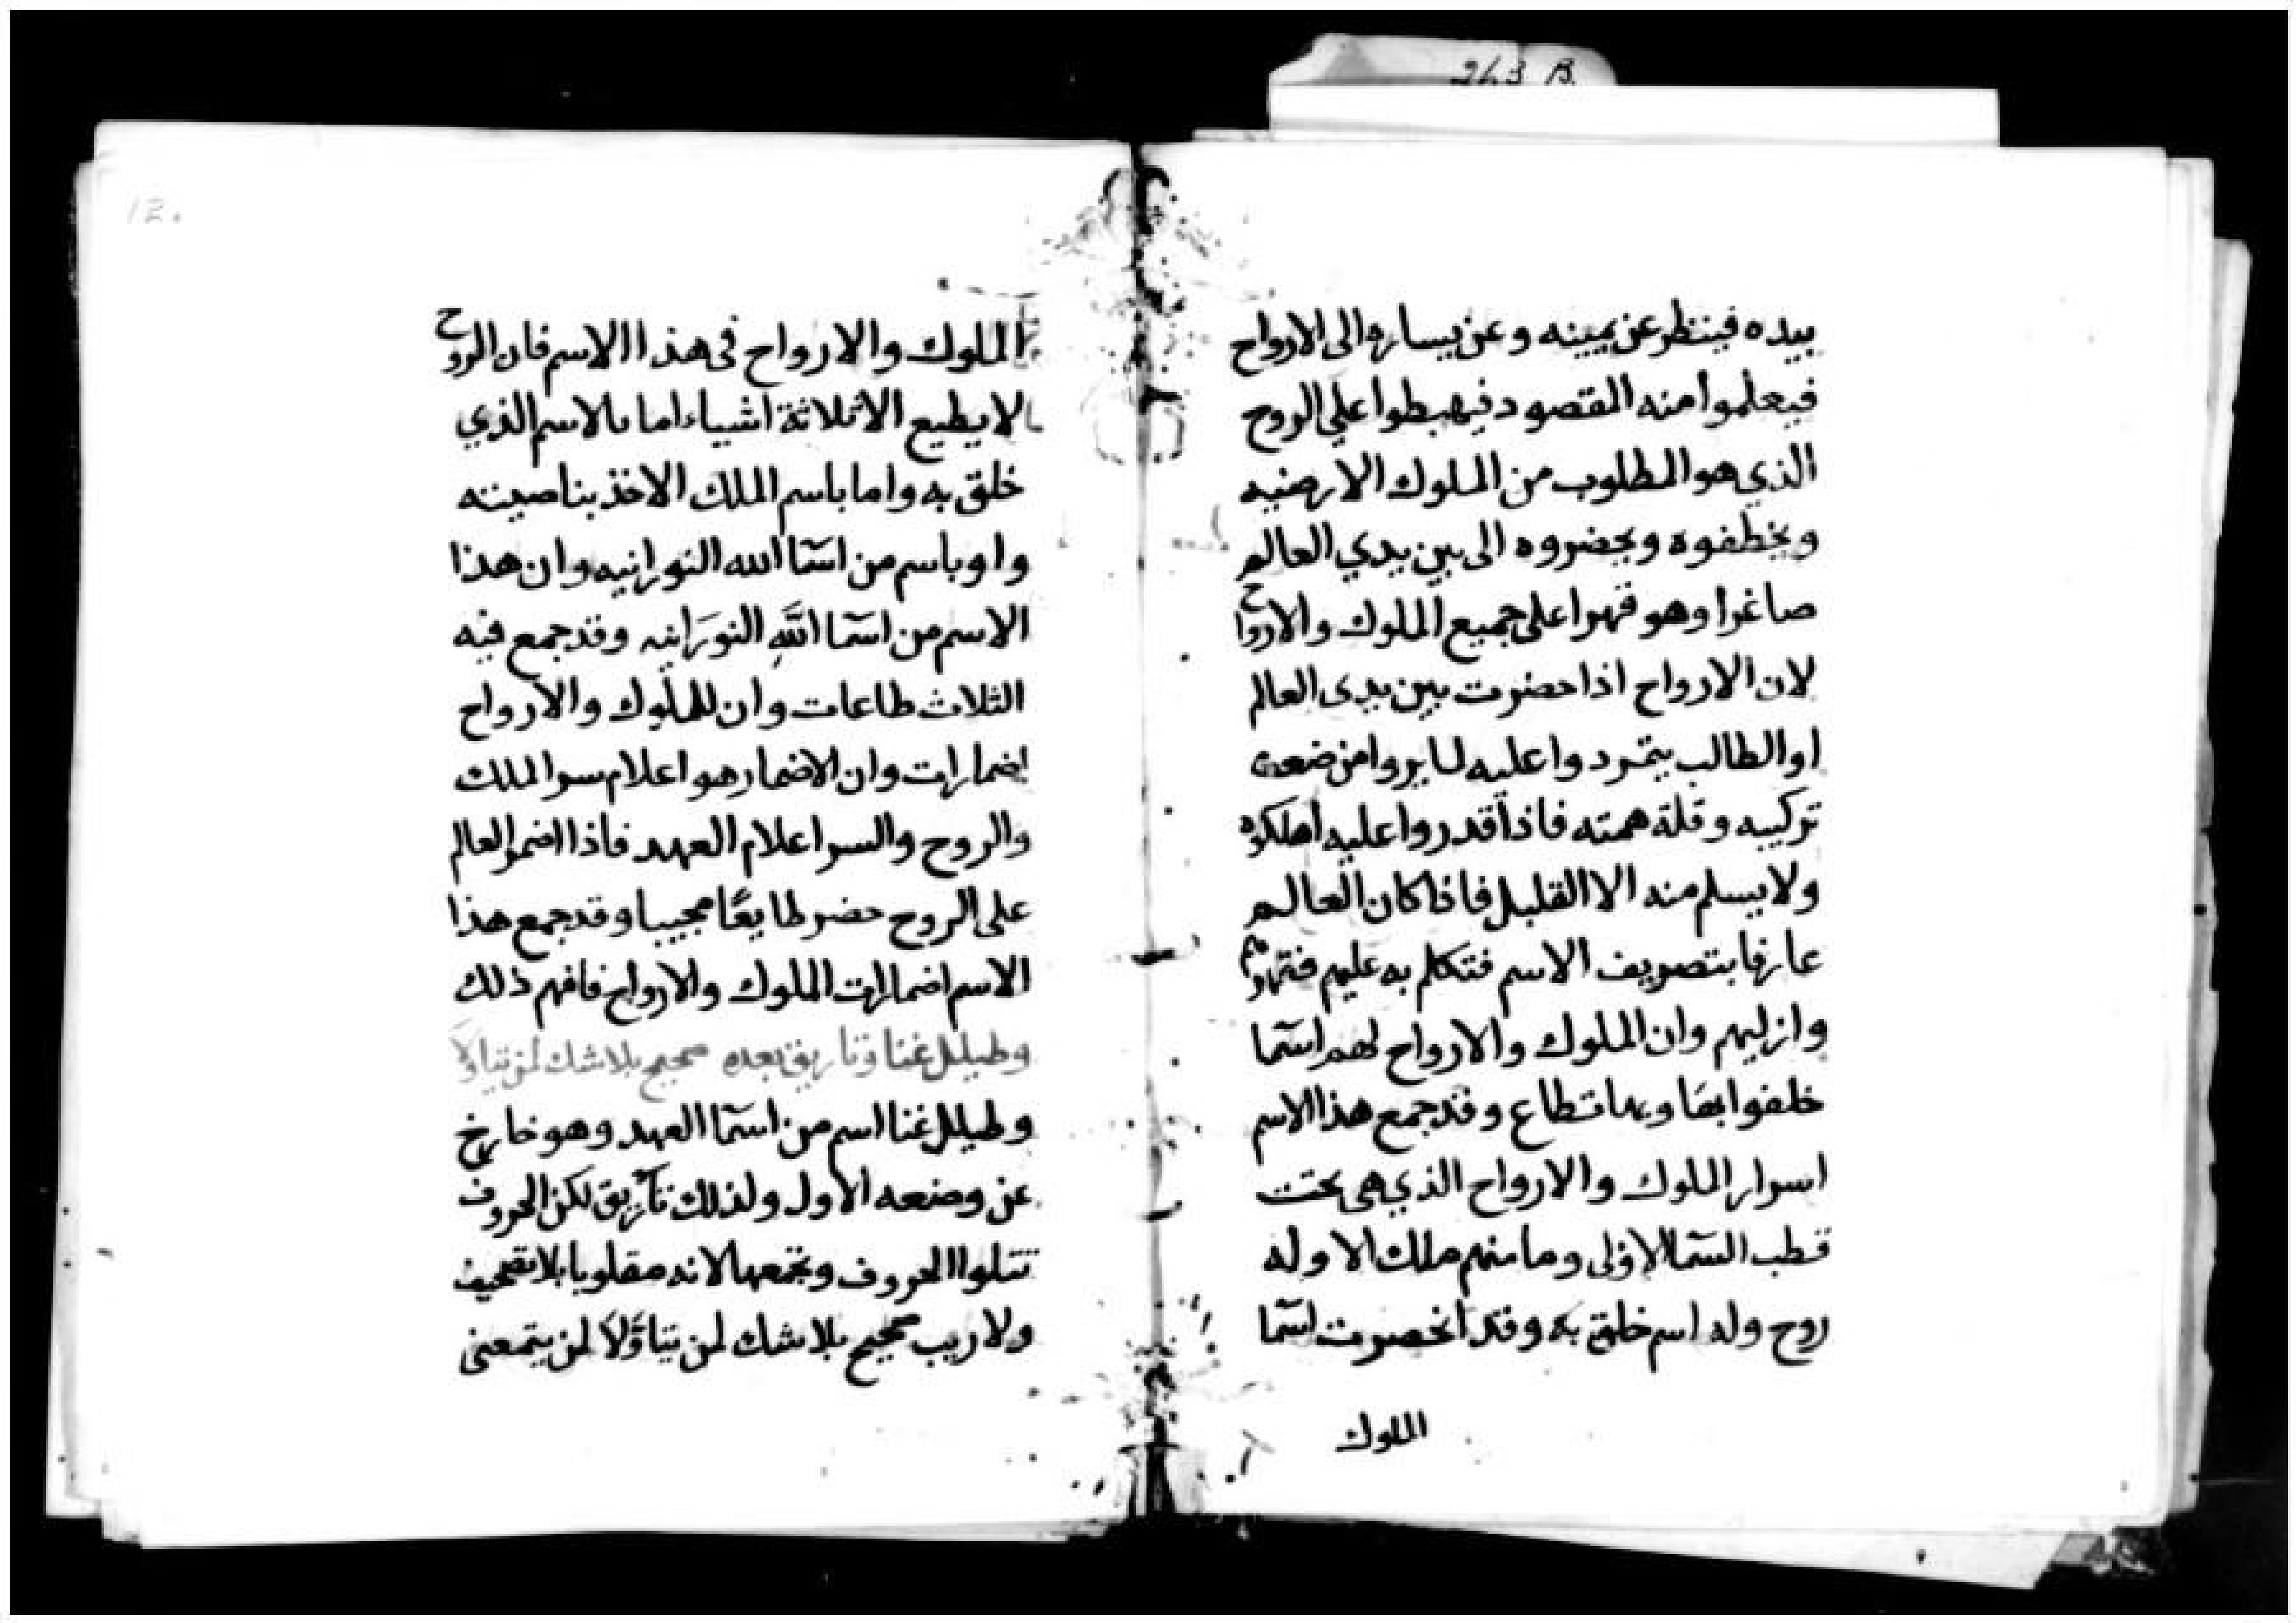 243 B.
بيده فينظر عن يمينه وعن يساره الى الارواح
فيعلموا منه المقصود فيهبطوا على الروح
الذي هو المطلوب من الملوك الارضيه
ويخطفوه ويحضروه الى بين يدي العالم
صاغرا وهو قهرا على جميع الملوك والارواح
لان الارواح اذا حضرت بين يدى العالم
او الطالب يتمردوا عليه لما يروا من ضعف
تركيبه وقلة همته فاذا قدروا عليه اهلكوه
ولا يسلم منه الا القليل فاذا كان العالم
عارفا بتصريف الاسم فتكلم به عليهم
وان الملوك والارواح لهم اسما
خلقوا بها وبها تطاع وقد جمع هذا الاسم
اسرار الملوك والارواح الذي هى تحت
قطب السما الاولى وما منهم ملك الا وله
روح وله اسم خلق به وقد انحصرت اسما
الملوك
12.
الملوك والارواح فى هذا الاسم فان الروح
لا يطيع الا ثلاثة اشياء اما بالاسم الذي
خلق به واما باسم الملك الاخذ بناصيته
واو باسم من اسما الله النورانيه وان هذا
الاسم من اسما الله النورانيه وقد جمع فيه
الثلاث طاعات وان للملوك والارواح
اضمارات وان الاضمار هو اعلام سر الملك
والروح والسر اعلام العهد فاذا اضمر العالم
على الروح حضر طايعًا مجيبا وقد جمع هذا
الاسم اضمارات الملوك والارواح فافهم ذلك
وطيلل غنا وتاريق بعده صحيح بلا شك لمن تناولا
وطيلل غنا اسم من اسما العهد وهو خارج
عن وضعه الاول ولذلك تآريق لكن الحروف
تتلوا الحروف وتجمعها لانه مقلوبا بلا تصحيف
ولا ريب صحيح بلا شك لمن تناولا لمن يتمعنى